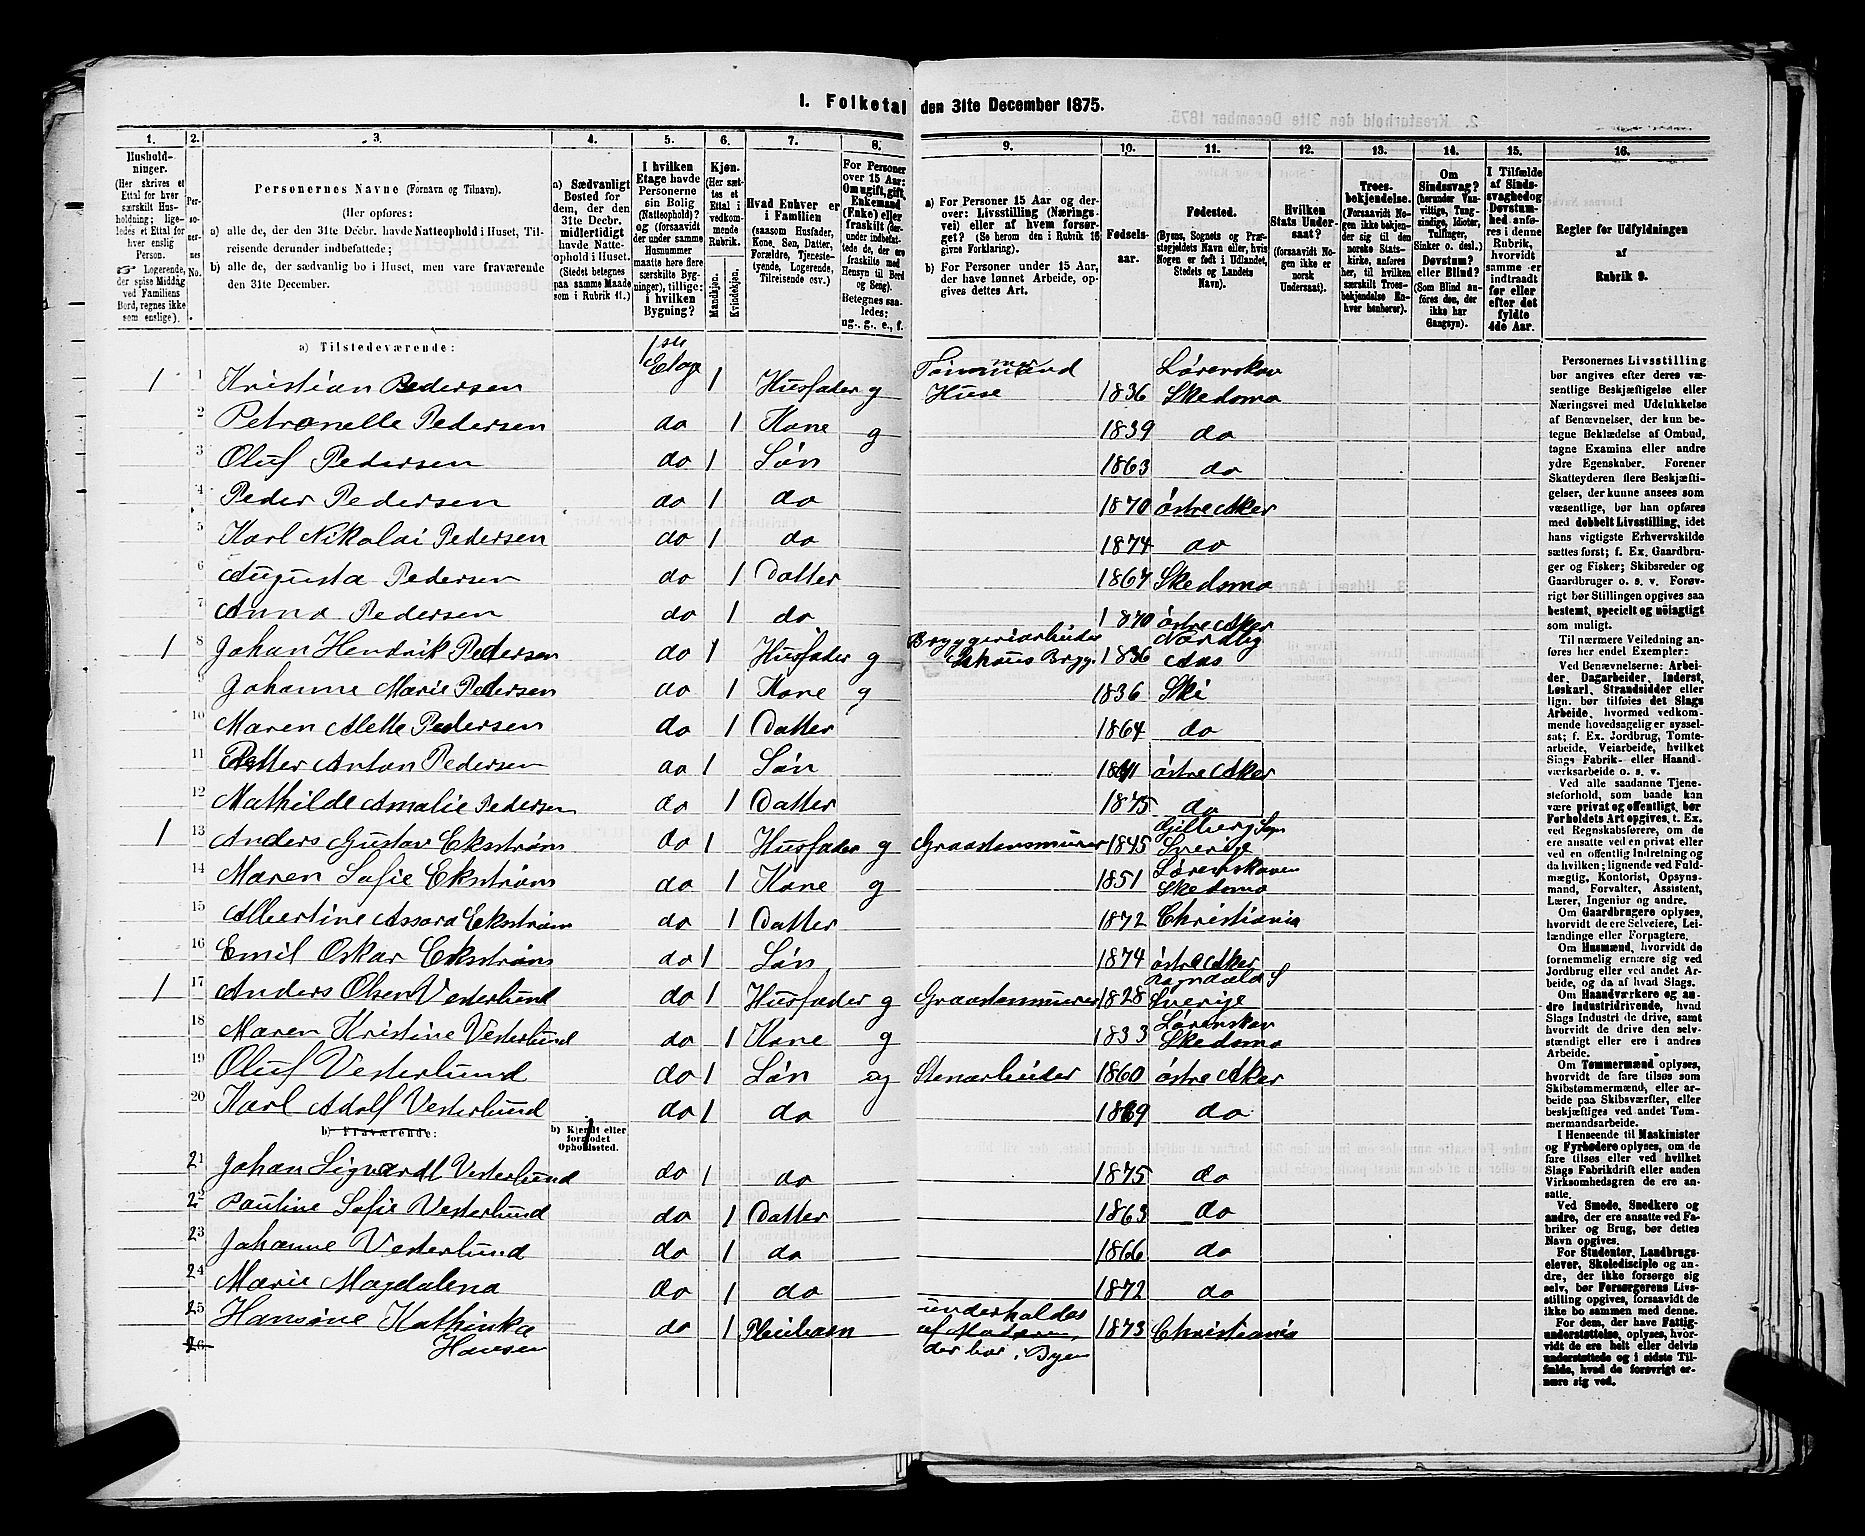 I. Folketal den 31te December 1875.
1. 2. 3. 4. 5. 6. 7. 8. 9. 10. 11. 12. 13. 14. 15. 16.
Husholdninger. (Her skrives et Ettal for hver særskilt Husholdning; ligeledes et Ettal for hver enslig Person. ☞ Logerende, der spise Middag ved Familiens Bord, regnes ikke som enslige).
Personernes No.
Personernes Navne (Fornavn og Tilnavn).
(Her opføres:
a) alle de, der den 31te Decbr. havde Natteophold i Huset, Tilreisende derunder indbefattede;
b) alle de, der sædvanlig bo i Huset, men vare fraværende den 31te December.
a) Sædvanligt Bosted for dem, der den 31te Decbr. midlertidigt havde Natteophold i Huset. (Stedet betegnes paa samme Maade som i Rubrik 11.)
I hvilken Etage havde Personerne sin Bolig (Natteophold)? og (forsaavidt der under samme Husnummer maatte høre flere særskilte Bygninger), tillige: i hvilken Bygning?
Kjøn. (Her sættes et Ettal i vedkommende Rubrik. Mandkjøn. Kvindekjøn.
Hvad Enhver er i Familien (saasom Husfader, Kone, Søn, Datter, Forældre, Tjenestetyende, Logerende, Tilreisende osv.)
For Personer over 15 Aar: Om ugift, gift, Enkemand (Enke) eller fraskilt (derunder indbefattede de, der ere fraskilte med Hensyn til Bord og Seng). Betegnes saaledes: ug., g., e., f.
a) For Personer 15 Aar og derover: Livsstilling (Næringsvei) eller af hvem forsørget? (Se herom den i Rubrik 16 givne Forklaring).
b) For Personer under 15 Aar, der have lønnet Arbeide, opgives dettes Art.
Fødselsaar.
Fødested. (Byens, Sognets og Præstegjældets Navn eller, hvis Nogen er født i Udlandet, Stedets og Landets Navn).
Hvilken Stats Undersaat? (forsaavidt Nogen ikke er norsk Undersaat).
Troesbekjendelse. (Forsaavidt Nogen ikke bekjender sig til den norske Statskirke, anføres her, til hvilken særskilt Troesbekjendelse Enhver henhører).
Om Sindssvag? (herunder Vanvittige, Tungsindige, Idioter, Tulfinger, Sinker o. desl.) Døvstum? eller Blind? (Som Blind anføres den, der ikke har Gangsyn).
I Tilfælde af Sindssvaghed og Døvstumhed anføres i denne Rubrik, hvorvidt samme er indtraadt før eller efter det fyldte 4de Aar.
Regler for Udfyldningen af Rubrik 9.
a) Tilstedeværende:
1 1 Kristian Pedersen 1ste Etage 1 Husfader g Tømmermand Huse 1836 Lørenskov Skedsmo
2 Petronelle Pedersen do 1 Kone g 1839 do
3 Oluf Pedersen do 1 Søn 1863 do
4 Peder Pedersen do 1 do 1870 Østre Aker
5 Karl Nikolai Pedersen do 1 do 1874 do
6 Augusta Pedersen do 1 Datter 1867 Skedsmo
7 Anna Pedersen do 1 do 1870 Østre Aker
1 8 Johan Hendrik Pedersen do 1 Husfader g Bryggeriarbeider 1836 Nordby Aas
9 Johanne Marie Pedersen do 1 Kone g 1836 Ski
10 Maren Alette Pedersen do 1 Datter 1864 do
11 Petter Anton Pedersen do 1 Søn Østre Aker
12 Mathilde Amalie Pedersen do 1 Datter 1875 do
1 13 Anders Gustav Ekstrøm do 1 Husfader g Graastensmurer 1845 Gilberg Sogn Sverige
14 Maren Sofie Ekstrøm do 1 Kone g 1851 Lørenskoven Skedsmo
15 Albertine Assora Ekstrøm do 1 Datter 1872 Christiania
16 Emil Oskar Ekstrøm do 1 Søn 1874 Østre Aker
1 17 Anders Olsen Vesterlund do 1 Husfader g Graastensmurer 1828 S Sverige
18 Maren Kristine Vesterlund do 1 Kone g 1833 Lørenskov Skedsmo
19 Oluf Vesterlund do 1 Søn ug Stenarbeider 1860 Østre Aker
20 Karl Adolf Vesterlund do 1 do 1869 do
b) Fraværende: b) Kjendt eller formodet Opholdssted.
21 Johan Sigvardt Vesterlund do 1 do 1875 do
22 Pauline Sofie Vesterlund do 1 Datter 1863 do
23 Johanne Vesterlund do 1 do 1866 do
24 Marie Magdalena do 1 do 1872 do
25 Hansine Kathinka Hansen do 1 Pleiebarn underholdes af Moderen, der bor i Byen 1873 Christiania
26
Personernes Livsstilling bør angives efter deres væsentlige Beskjæftigelse eller Næringsvei med Udelukkelse af Benævnelser, der kun betegne Beklædelse af Ombud, tagne Examina eller andre ydre Egenskaber. Forener Skatteyderen flere Beskjæftigelser, der kunne ansees som væsentlige, bør han opføres med dobbelt Livsstilling, idet hans vigtigste Erhvervskilde sættes først; f. Ex. Gaardbruger og Fisker; Skibsreder og Gaardbruger o. s. v. Forøvrigt bør Stillingen opgives saa bestemt, specielt og nøiagtigt som muligt.
Til nærmere Veiledning anføres her endel Exempler:
Ved Benævnelserne: Arbeider, Dagarbeider, Inderst, Løskarl, Strandsidder eller lign. bør tilføies det Slags Arbeide, hvormed vedkommende hovedsagelig er sysselsat; f. Ex. Jordbrug, Tomtearbeide, Veiarbeide, hvilket Slags Fabrik- eller Haandværksarbeide o. s. v.
Ved alle saadanne Tjenesteforhold, som baade kan være privat og offentligt, bør Forholdets Art opgives, t. Ex. ved Regnskabsførere, om de ere ansatte ved en privat eller ved en offentlig Indretning og da hvilken; lignende ved Fuldmægtig, Kontorist, Opsynsmand, Forvalter, Assistent, Lærer, Ingeniør og andre.
Om Gaardbrugere oplyses, hvorvidt de ere Selveiere, Leilændinge eller Forpagtere.
Om Husmænd, hvorvidt de fornemmelig ernære sig ved Jordbrug eller ved andet Arbeide, og da af hvad Slags.
Om Haandværkere og andre Industridrivende, hvad Slags Industri de drive, samt hvorvidt de drive den selvstændigt eller ere i andres Arbeide.
Om Tømmermænd oplyses, hvorvidt de fare tilsøs som Skibstømmermænd, eller arbeide paa Skibsværfter, eller beskjæftiges ved andet Tømmermandsarbeide.
I Henseende til Maskinister og Fyrbødere oplyses, om de fare tilsøs eller ved hvilket Slags Fabrikdrift eller anden Virksomhedsgren de ere ansatte.
Ved Smede, Snedkere og andre, der ere ansatte ved Fabriker og Brug, bør dettes Navn opgives.
For Studenter, Landbrugselever, Skoledisciple og andre, der ikke forsørge sig selv, bør Forsørgerens Livsstilling opgives, forsaavidt de ikke bo sammen med denne.
For dem, der have Fattigunderstøttelse, oplyses, hvorvidt de ere helt eller delvis understøttede og i sidste Tilfælde, hvad de forøvrigt ernære sig ved.